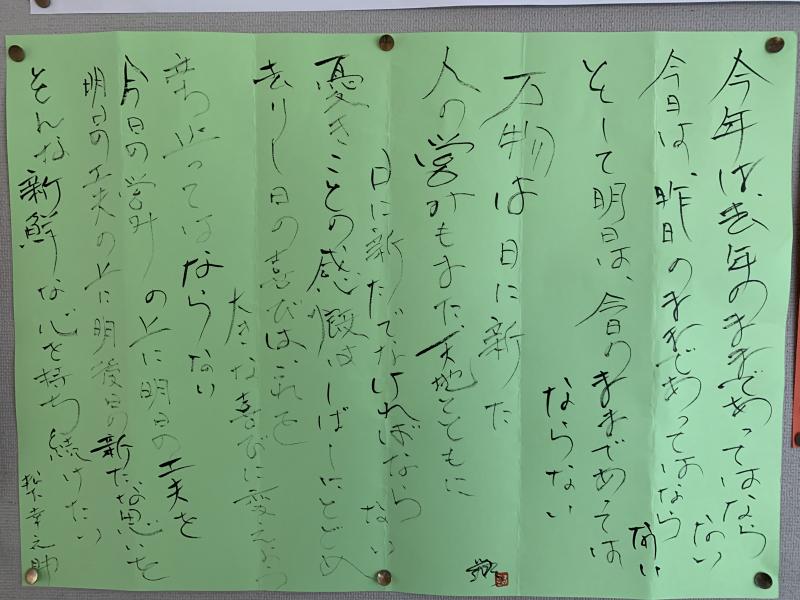 今年は、去年のままであってはなら
ない
今日は、昨日のままであってはなら
ない
そして明日は、今日のままであっては
ならない
万物は日に新た
人の営みもまた、天地とともに
日に新たでなければなら
ない
憂きことの感慨はしばしにとどめ
去りし日の喜びは、これを
大きな喜びに変えよう
立ち止ってはならない
今日の営みの上に明日の工夫を
明日の工夫の上に明後日の新たな思いを
そんな新鮮な心を持ち続けたい
松下幸之助